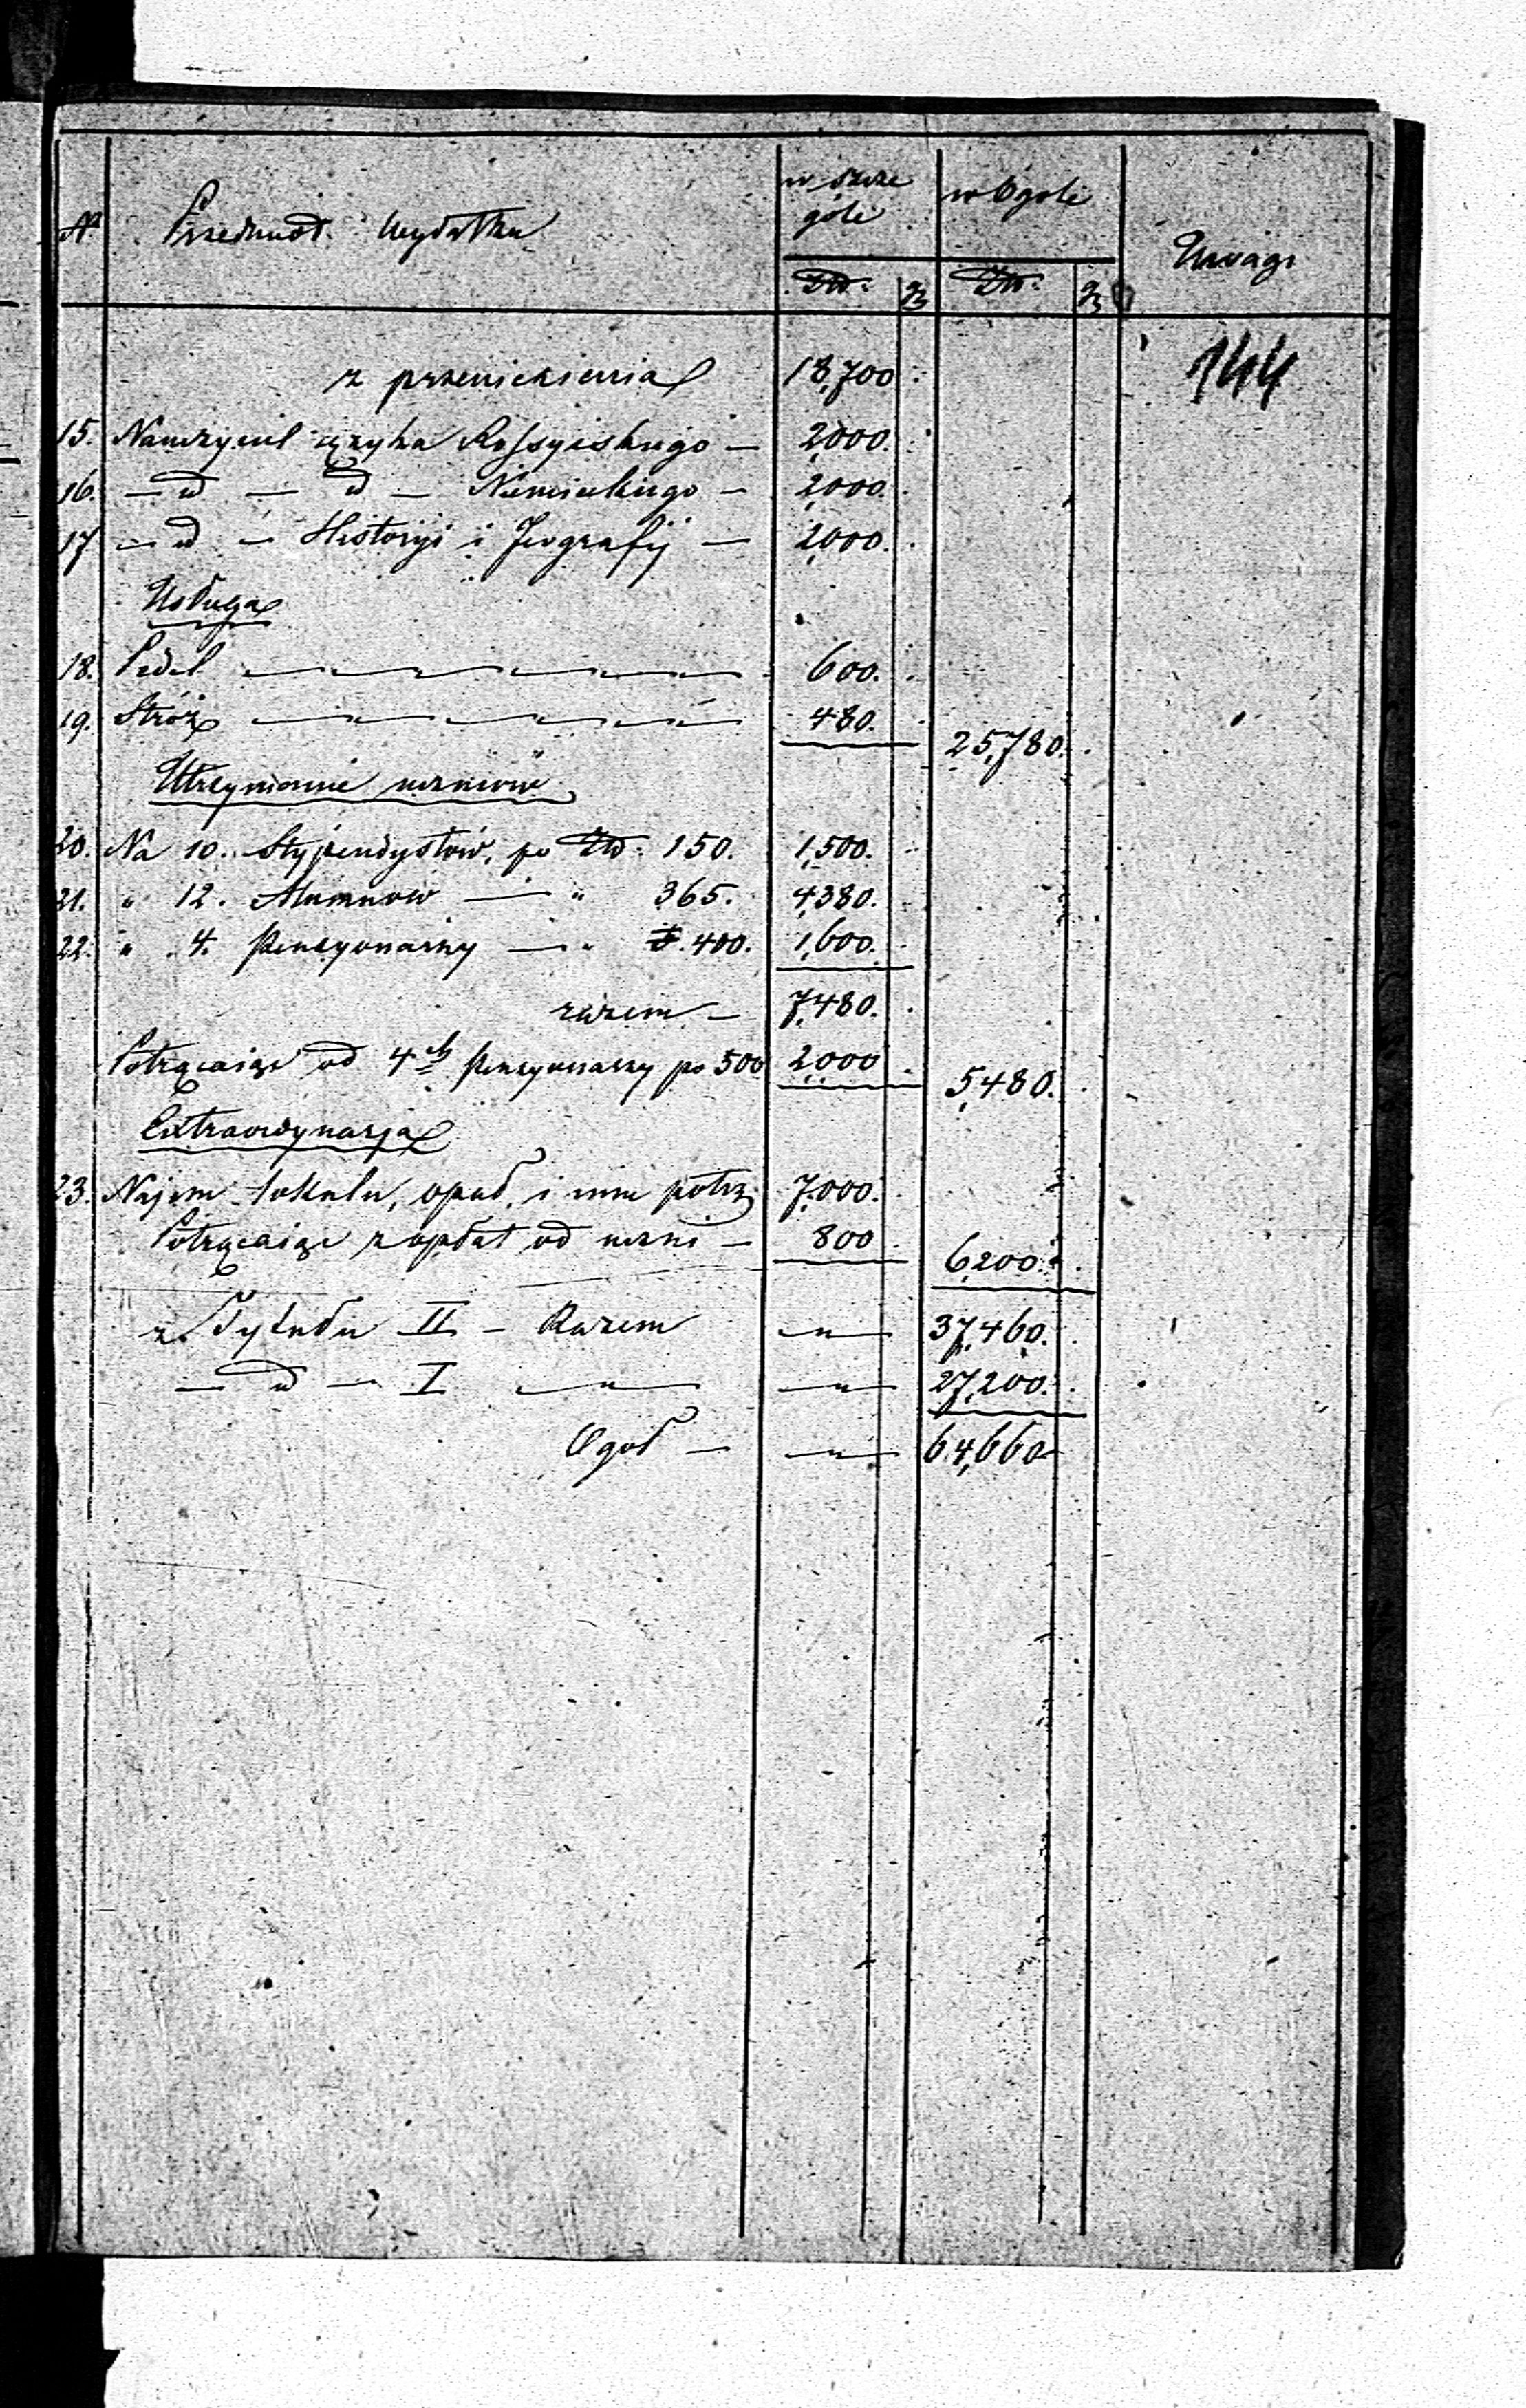 N° Przedmiot Wydatku w szcze góle w Ogóle Uwagi
Złł. gr Złł. gr
z przeniesienia 18,700 144
15. Nauczyciel języka Rossyiskiego — 2,000.
16. — d — d — Niemieckiego — 2,000.
17 — d — Historyi i Jeografij — 2,000.
Usługa
18. Pedel 600.
19. Stróż 480. 25,780.
Utrzymanie uczniów
20. Na 10. Stypendystów, po Złł. 150. 1,500.
21. " 12. Alumnów — " 365. 4,380.
22. " 4. Pensyonarzy — " 400. 1,600.
razem — 7,480.
Potrącaiąc od 4ch Pensyonarzy po 500 2,000 5,480.
Extraordynarja
23. Najem lokalu, opał, i inne potrz. 7,000.
Potrącaiąc z opłat od uczni — 800 6,200.
z Tytułu II — Razem — " — 37,460.
— d — I — " — — " — 27,200.
Ogół — — " — 64,660